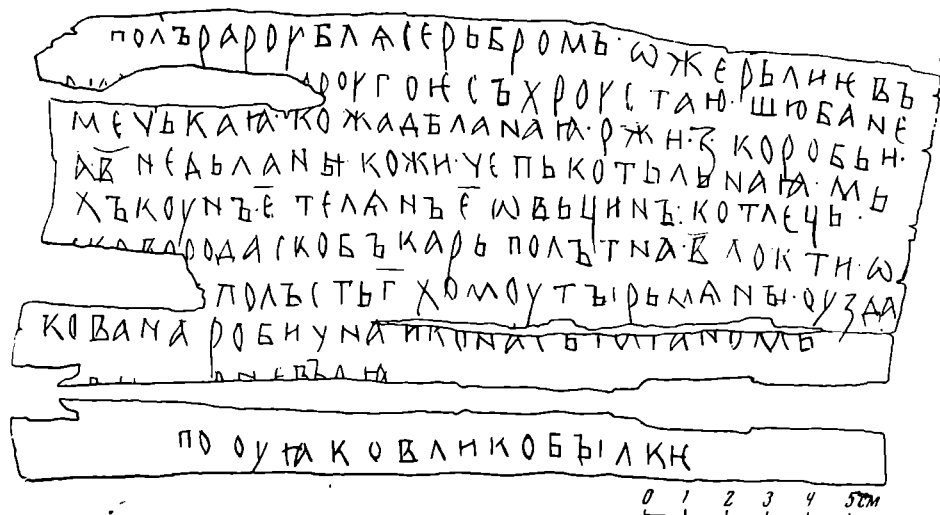 полърароублѧсерьбромъ·ѡжерьлиѥвъ
роугоѥсъхроустаю·шюбане
мечькаꙗ·кожадѣланаꙗ·ржи·з коробьи·
ав҃ недьланы кожи·чепькотьльнаꙗ·мь
хъкоунъ·е҃ телѧнъ е҃ ѡвьцинъ:котлець·
сковородаскобъкарь полътна·в҃ локти·ѡ
полъсть·г҃ хомоутъірьмѧнъі·оузда
кованаробичнаикона
по оуꙗковликобъілкѥ
0 1 2 3 4 5см